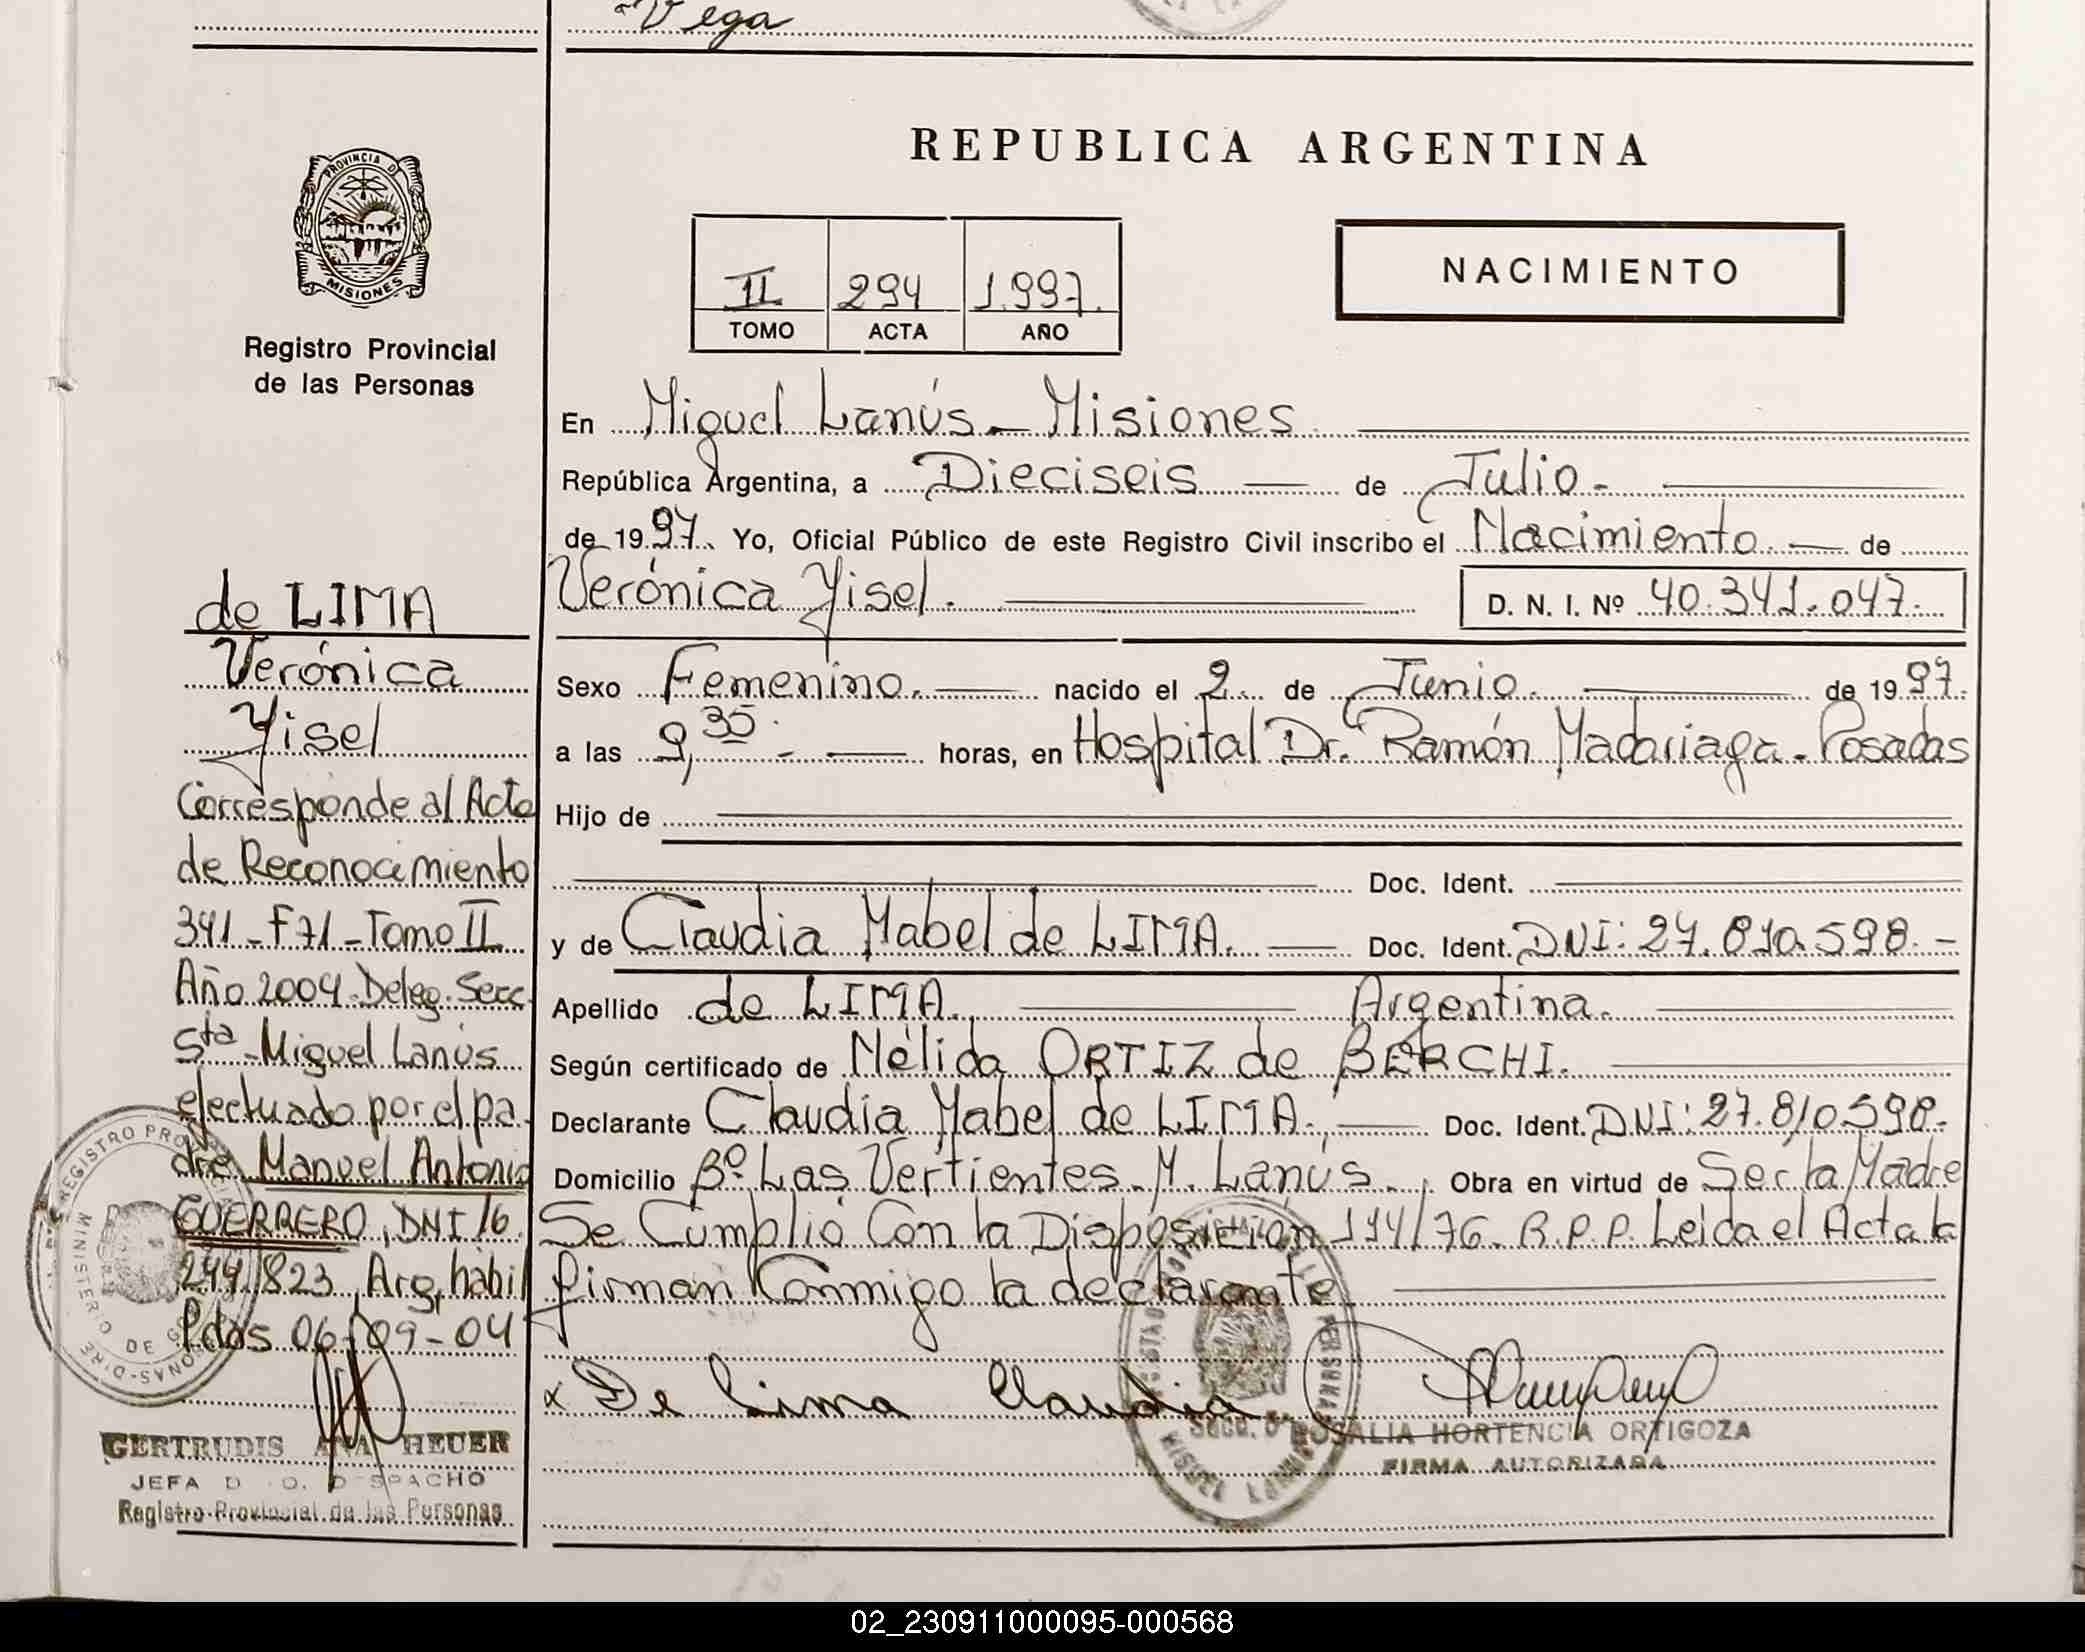 Vega
REPUBLICA ARGENTINA
PROVINCIA D
MISIONES
Registro Provincial
de las Personas
II 294 1.997.
TOMO ACTA AÑO
NACIMIENTO
En Miguel Lanús - Misiones
República Argentina, a Dieciseis de Julio.-
de 1997. Yo, Oficial Público de este Registro Civil inscribo el Nacimiento de
Verónica Yisel. D. N. I. Nº 40.341.047.
Sexo Femenino. nacido el 2 de Junio de 1997.
a las 9,35 horas, en Hospital Dr. Ramón Madariaga - Posadas
Hijo de
Doc. Ident.
y de Claudia Mabel de LIMA. Doc. Ident. DNI: 27.810.598.-
Apellido de LIMA. Argentina.
Según certificado de Nélida ORTIZ de BERCHI.
Declarante Claudia Mabel de LIMA. Doc. Ident. DNI: 27.810.598.
Domicilio Bº Las Vertientes - M. Lanús. Obra en virtud de Ser la Madre
Se Cumplió Con la Disposición 114/76. R.P.P. Leida el Acta la
firman Conmigo la declarante
x De Lima Claudia
ROSALIA HORTENCIA ORTIGOZA
FIRMA AUTORIZADA
de LIMA
Verónica
Yisel
Corresponde al Acta
de Reconocimiento
341 - F71 - Tomo II
Año 2004. Deleg. Secc.
5ta - Miguel Lanús
efectuado por el pa-
dre Manuel Antonio
GUERRERO, DNI 16.
244.823, Arg, hábil
Pdas 06-09-04
GERTRUDIS ANA HEUER
JEFA D O. D SPACHO
Registro Provincial de las Personas
02_230911000095-000568